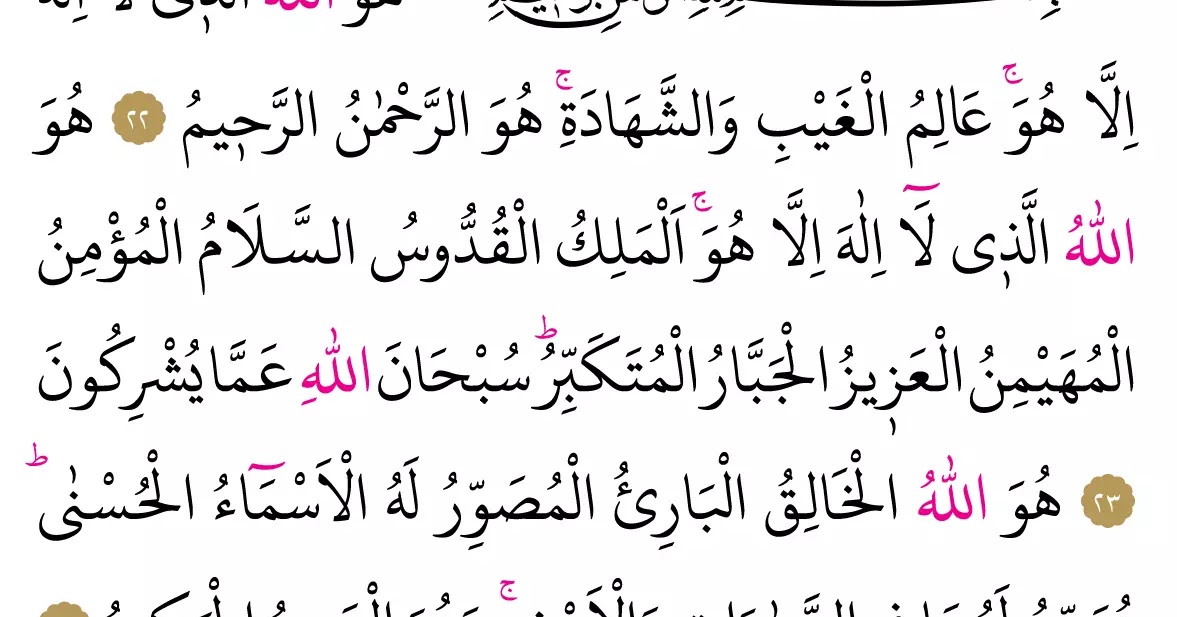 هُوَ اللّٰهُ الَّذٖى لَٓا اِلٰهَ
اِلَّا هُوَۚ عَالِمُ الْغَيْبِ وَالشَّهَادَةِۚ هُوَ الرَّحْمٰنُ الرَّحٖيمُ ﴿٢٢﴾ هُوَ
اللّٰهُ الَّذٖى لَٓا اِلٰهَ اِلَّا هُوَۚ اَلْمَلِكُ الْقُدُّوسُ السَّلَامُ الْمُؤْمِنُ
الْمُهَيْمِنُ الْعَزٖيزُ الْجَبَّارُ الْمُتَكَبِّرُؕ سُبْحَانَ اللّٰهِ عَمَّا يُشْرِكُونَ
﴿٢٣﴾ هُوَ اللّٰهُ الْخَالِقُ الْبَارِئُ الْمُصَوِّرُ لَهُ الْاَسْمَٓاءُ الْحُسْنٰىؕ